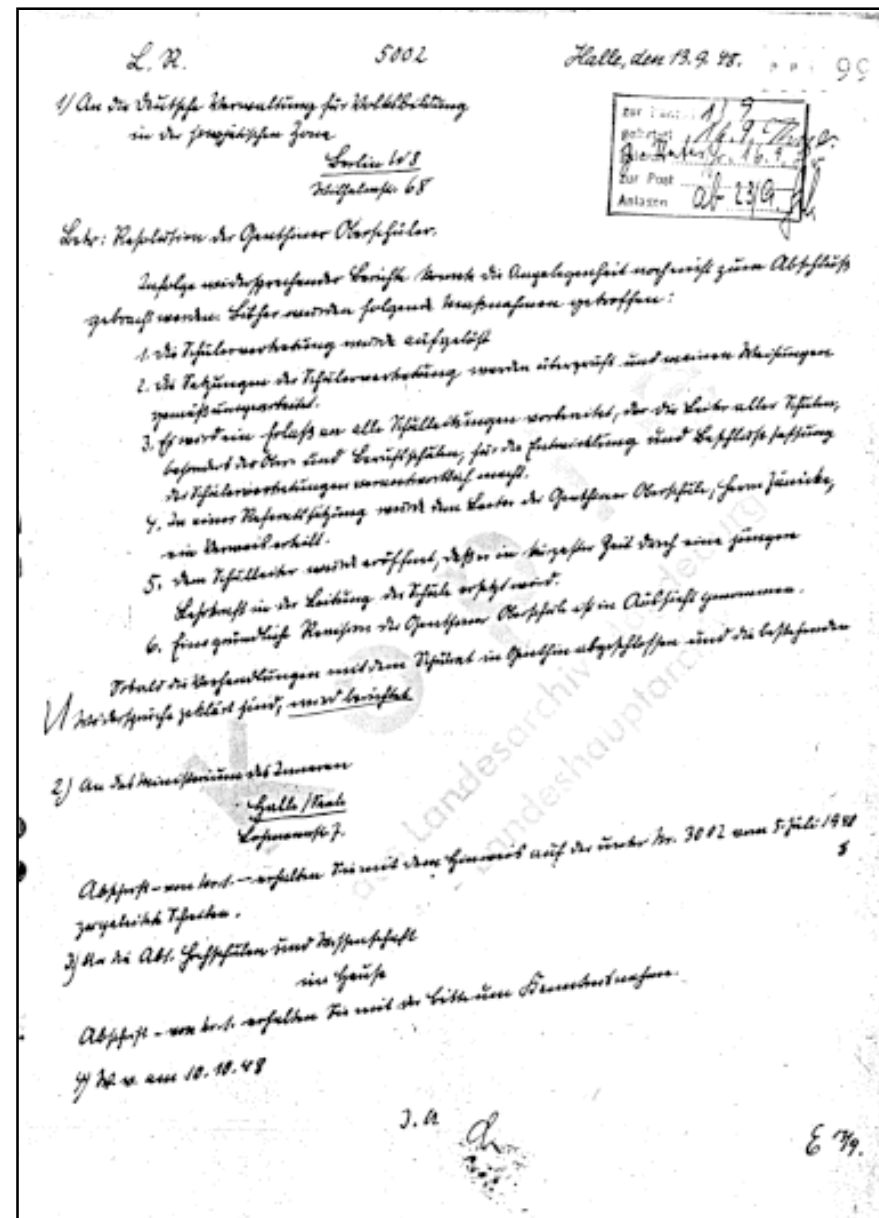 L. R. 5002 Halle, den 13.9.48. 99
1) An die Deutsche Verwaltung für Volksbildung
in der sowjetischen Zone
Berlin W 8
Wilhelmstr. 68
zur Post
ab 23/9
Anlagen
Betr: Resolution der Genthiner Oberschüler.
Infolge widersprechender Berichte konnte die Angelegenheit noch nicht zum Abschluß
gebracht werden. Bisher wurden folgende Maßnahmen getroffen:
1. Die Schülervertretung wurde aufgelöst
2. Die Satzungen der Schülervertretung werden überprüft und meinen Weisungen
gemäß umgearbeitet.
3. Es wird ein Erlaß an alle Schulleitungen vorbereitet, der die Leiter aller Schulen,
besonders der Ober- und Berufsschulen, für die Entwicklung und Beschlussfassung
der Schülervertretungen verantwortlich macht.
4. In einer Referatssitzung wurde dem Leiter der Genthiner Oberschule, Herrn Jänicke,
ein Verweis erteilt.
5. Dem Schulleiter wurde eröffnet, daß er in kürzester Zeit durch eine jüngere
Lehrkraft in der Leitung der Schule ersetzt wird.
6. Eine gründliche Revision der Genthiner Oberschule ist in Aussicht genommen.
Sobald die Verhandlungen mit dem Schulrat in Genthin abgeschlossen und die bestehenden
Widersprüche geklärt sind, wird berichtet
2) An das Ministerium des Inneren
Halle/Saale
Abschrift - von Nr. 1. - erhalten Sie mit dem Hinweis auf das unter Nr. 3002 vom 5. Juli 1948
zugeleitete Schreiben.
3) An die Abt. Hochschulen und Wissenschaft
im Hause
Abschrift - von Nr. 1. erhalten Sie mit der Bitte um Kenntnisnahme.
4) W. v. am 10.10.48
I. A.